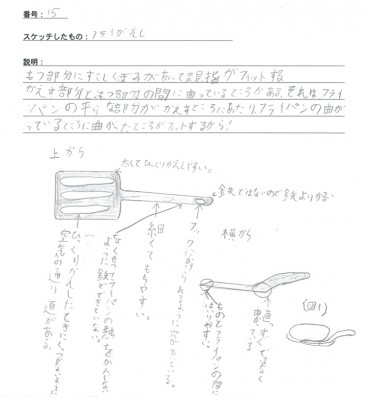 番号：15
スケッチしたもの：フライがえし
説明：
もつ部分にすこしくぼみがあって親指がフィット
かえす部分と、もつ部分の間に曲っているところがある。それはフライ
パンの平らな部分がかえすところにあたり、フライパンの曲が
っているところに曲がったところがフィットするから!
上から
太くてひっくりかえしやすい。
鉄ではないので鉄よりかるい
フックにかけられるように穴があいている。
細くてもちやすい。
ひっくりかえしたときにくっつかないように
空気の通り道がある。
横から
まっすぐではなく
曲っている
ものとフライパンの間に
はいりやすい。
(図1)